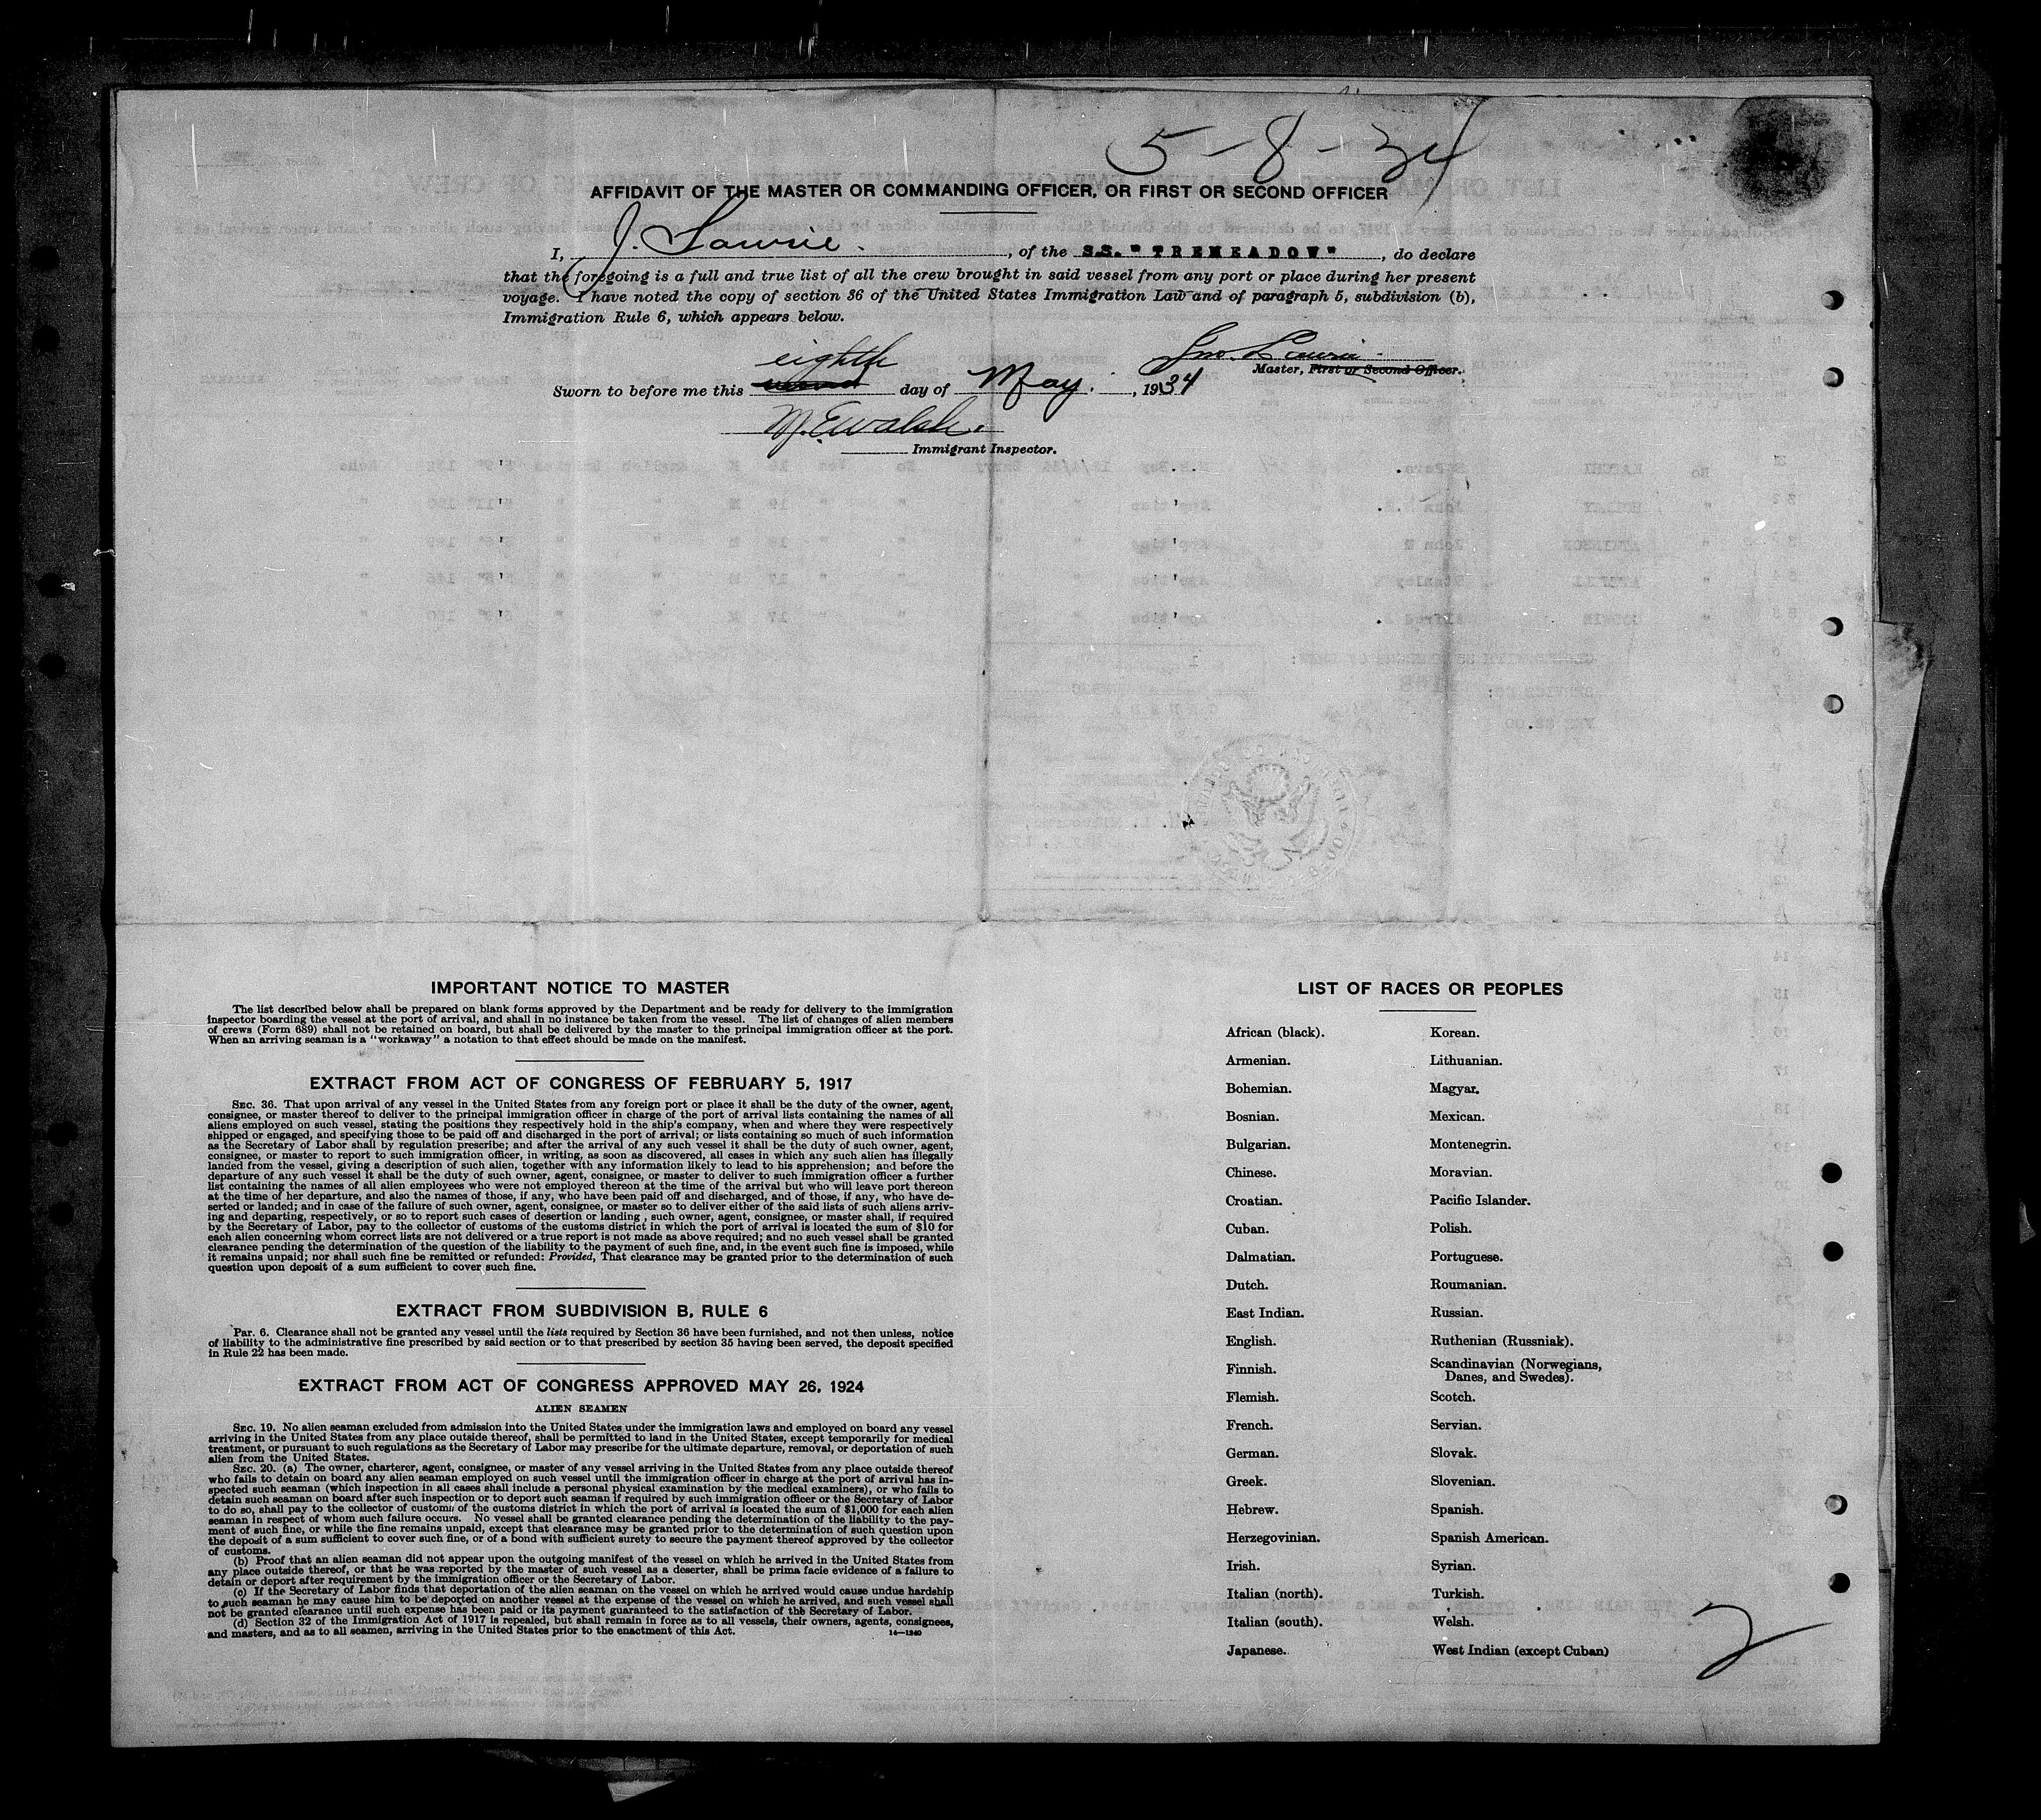 5-8-34
AFFIDAVIT OF THE MASTER OR COMMANDING OFFICER, OR FIRST OR SECOND OFFICER
I, J. Lawrie., of the S.S. "TREMEADOW", do declare
that the foregoing is a full and true list of all the crew brought in said vessel from any port or place during her present
voyage. I have noted the copy of section 36 of the United States Immigration Law and of paragraph 5, subdivision (b),
Immigration Rule 6, which appears below.
Jno. Lawrie.
Master, First or Second Officer.
Sworn to before me this eighth day of May., 1934
M.E. Walsh.
Immigrant Inspector.
IMPORTANT NOTICE TO MASTER
The list described below shall be prepared on blank forms approved by the Department and be ready for delivery to the immigration
inspector boarding the vessel at the port of arrival, and shall in no instance be taken from the vessel. The list of changes of alien members
of crews (Form 689) shall not be retained on board, but shall be delivered by the master to the principal immigration officer at the port.
When an arriving seaman is a "workaway" a notation to that effect should be made on the manifest.
EXTRACT FROM ACT OF CONGRESS OF FEBRUARY 5, 1917
SEC. 36. That upon arrival of any vessel in the United States from any foreign port or place it shall be the duty of the owner, agent,
consignee, or master thereof to deliver to the principal immigration officer in charge of the port of arrival lists containing the names of all
aliens employed on such vessel, stating the positions they respectively hold in the ship's company, when and where they were respectively
shipped or engaged, and specifying those to be paid off and discharged in the port of arrival; or lists containing so much of such information
as the Secretary of Labor shall by regulation prescribe; and after the arrival of any such vessel it shall be the duty of such owner, agent,
consignee, or master to report to such immigration officer, in writing, as soon as discovered, all cases in which any such alien has illegally
landed from the vessel, giving a description of such alien, together with any information likely to lead to his apprehension; and before the
departure of any such vessel it shall be the duty of such owner, agent, consignee, or master to deliver to such immigration officer a further
list containing the names of all alien employees who were not employed thereon at the time of the arrival but who will leave port thereon
at the time of her departure, and also the names of those, if any, who have been paid off and discharged, and of those, if any, who have de-
serted or landed; and in case of the failure of such owner, agent, consignee, or master so to deliver either of the said lists of such aliens arriv-
ing and departing, respectively, or so to report such cases of desertion or landing, such owner, agent, consignee, or master shall, if required
by the Secretary of Labor, pay to the collector of customs of the customs district in which the port of arrival is located the sum of $10 for
each alien concerning whom correct lists are not delivered or a true report is not made as above required; and no such vessel shall be granted
clearance pending the determination of the question of the liability to the payment of such fine, and, in the event such fine is imposed, while
it remains unpaid; nor shall such fine be remitted or refunded: Provided, That clearance may be granted prior to the determination of such
question upon deposit of a sum sufficient to cover such fine.
EXTRACT FROM SUBDIVISION B, RULE 6
Par. 6. Clearance shall not be granted any vessel until the lists required by Section 36 have been furnished, and not then unless, notice
of liability to the administrative fine prescribed by said section or to that prescribed by section 35 having been served, the deposit specified
in Rule 22 has been made.
EXTRACT FROM ACT OF CONGRESS APPROVED MAY 26, 1924
ALIEN SEAMEN
SEC. 19. No alien seaman excluded from admission into the United States under the immigration laws and employed on board any vessel
arriving in the United States from any place outside thereof, shall be permitted to land in the United States, except temporarily for medical
treatment, or pursuant to such regulations as the Secretary of Labor may prescribe for the ultimate departure, removal, or deportation of such
alien from the United States.
SEC. 20. (a) The owner, charterer, agent, consignee, or master of any vessel arriving in the United States from any place outside thereof
who fails to detain on board any alien seaman employed on such vessel until the immigration officer in charge at the port of arrival has in-
spected such seaman (which inspection in all cases shall include a personal physical examination by the medical examiners), or who fails to
detain such seaman on board after such inspection or to deport such seaman if required by such immigration officer or the Secretary of Labor
to do so, shall pay to the collector of customs of the customs district in which the port of arrival is located the sum of $1,000 for each alien
seaman in respect of whom such failure occurs. No vessel shall be granted clearance pending the determination of the liability to the pay-
ment of such fine, or while the fine remains unpaid, except that clearance may be granted prior to the determination of such question upon
the deposit of a sum sufficient to cover such fine, or of a bond with sufficient surety to secure the payment thereof approved by the collector
of customs.
(b) Proof that an alien seaman did not appear upon the outgoing manifest of the vessel on which he arrived in the United States from
any place outside thereof, or that he was reported by the master of such vessel as a deserter, shall be prima facie evidence of a failure to
detain or deport after requirement by the immigration officer or the Secretary of Labor.
(c) If the Secretary of Labor finds that deportation of the alien seaman on the vessel on which he arrived would cause undue hardship
to such seaman he may cause him to be deported on another vessel at the expense of the vessel on which he arrived, and such vessel shall
not be granted clearance until such expense has been paid or its payment guaranteed to the satisfaction of the Secretary of Labor.
(d) Section 32 of the Immigration Act of 1917 is repealed, but shall remain in force as to all vessels, their owners, agents, consignees,
and masters, and as to all seamen, arriving in the United States prior to the enactment of this Act.
14—1240
LIST OF RACES OR PEOPLES
African (black). Korean.
Armenian. Lithuanian.
Bohemian. Magyar.
Bosnian. Mexican.
Bulgarian. Montenegrin.
Chinese. Moravian.
Croatian. Pacific Islander.
Cuban. Polish.
Dalmatian. Portuguese.
Dutch. Roumanian.
East Indian. Russian.
English. Ruthenian (Russniak).
Finnish. Scandinavian (Norwegians,
Danes, and Swedes).
Flemish. Scotch.
French. Servian.
German. Slovak.
Greek. Slovenian.
Hebrew. Spanish.
Herzegovinian. Spanish American.
Irish. Syrian.
Italian (north). Turkish.
Italian (south). Welsh.
Japanese. West Indian (except Cuban)
2